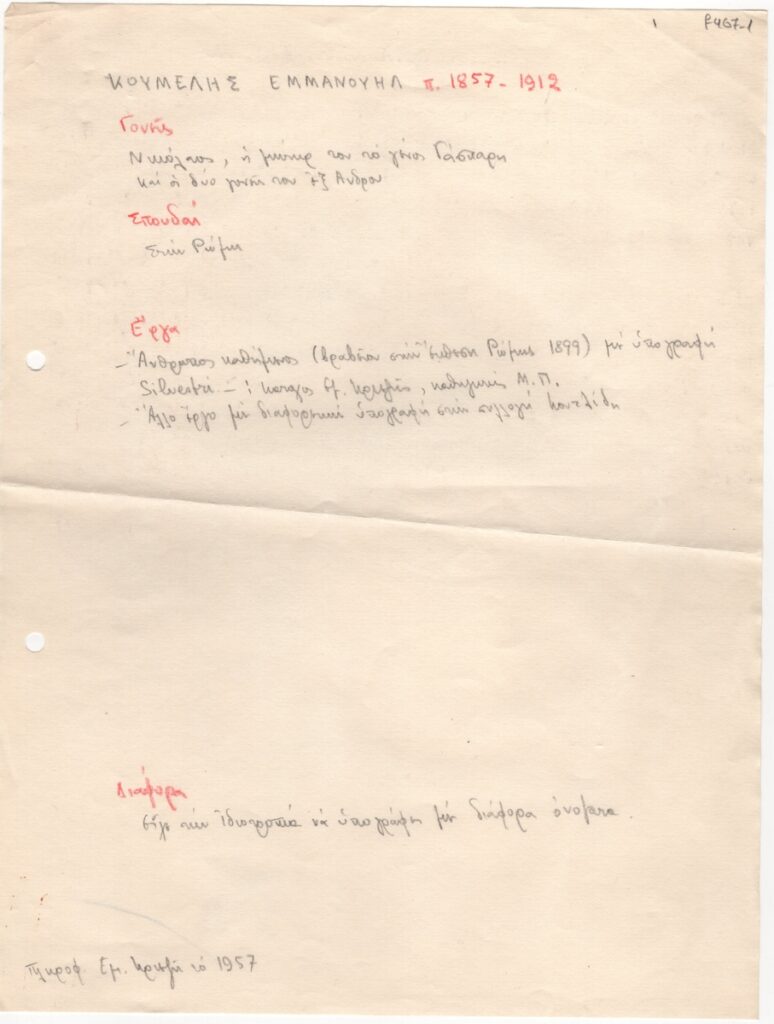 1 φ467-1
ΚΟΥΜΕΛΗΣ ΕΜΜΑΝΟΥΗΛ π. 1857 - 1912
Γονεῖς
Νικόλαος, ἡ μήτηρ του τό γένος Γάσπαρη
καί οἱ δύο γονεῖς του ἐξ Ἄνδρου
Σπουδαί
Στήν Ρώμη
Ἔργα
– Ἄνθρωπος καθήμενος (βραβεῖον στήν ἔκθεση Ρώμης 1899) μέ ὑπογραφή
Silvestri – : Ἐμ. Κριεζῆς, καθηγητής Μ.Π.
– Ἄλλο ἔργο μέ διαφορετική ὑπογραφή στήν συλλογή Κουτλίδη
Διάφορα
εἶχε τήν ἰδιοτροπία νά ὑπογράφη μέ διάφορα ὀνόματα.
Πληροφ. Ἐμ. Κριεζῆ τό 1957